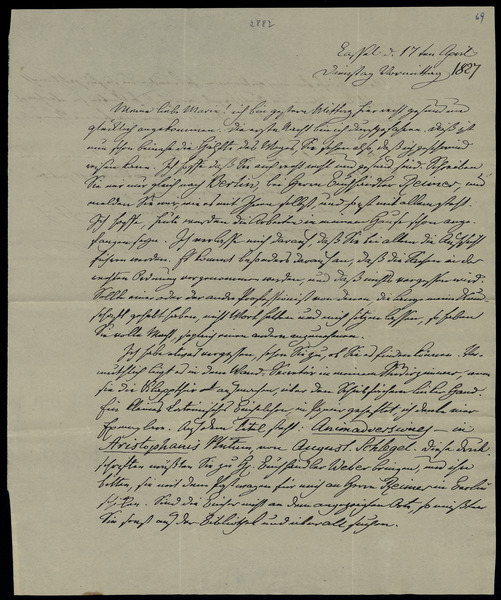 2882
69
Cassel d. 17ten April
Dienstag Vormittag 1827
Meine liebe Marie! ich bin gestern Mittag hier recht gesund und
glücklich angekommen. Die erste Nacht bin ich durchgefahren. Dieß ist
nun schon beinahe die Hälfte des Weges, Sie sehen also, daß ich geschwind
reisen kann. Ich hoffe daß Sie auch recht wohl und gesund sind. Schreiben
Sie mir nur gleich nach Berlin, bei Herrn Buchhändler Reimer, und
melden Sie mir, wie es mit Ihnen selbst, und sonst mit allem steht.
Ich hoffe, heute werden die Arbeiten in meinem Hause schon ange-
fangen seyn. Ich verlasse mich darauf, daß Sie bei allem die Aufsicht
führen werden. Es kommt besonders darauf an, daß die Sachen in der
rechten Ordnung vorgenommen werden, und daß nichts vergessen wird.
Sollte einer oder der andre Professionist von denen, die lange meine Kund-
schaft gehabt haben, nicht Wort halten und mich sitzen lassen, so haben
Sie volle Macht, sogleich einen andern anzunehmen.
Ich habe etwas vergessen, sehen Sie zu, ob Sie es finden können. Ver-
muthlich liegt es in dem Wand-Secretär in meinem Studirzimmer, wenn
Sie die Klapptür aufmachen, über den Schubfächern linker Hand.
Ein kleines lateinisches Büchelchen, in Papier geheftet, ich denke vier
Exemplare. Auf dem Titel steht: Animadversiones – in
Aristophanis Plutum, von August. Schlegel. Diese Druck-
schriften müßten Sie zu H. Buchhändler Weber bringen, und ihn
bitten, sie mit dem Postwagen für mich an Herrn Reimer in Berlin
schicken. Sind die Bücher nicht an dem angezeigten Orte, so müßten
Sie sonst auf der Bibliothek und überall suchen.